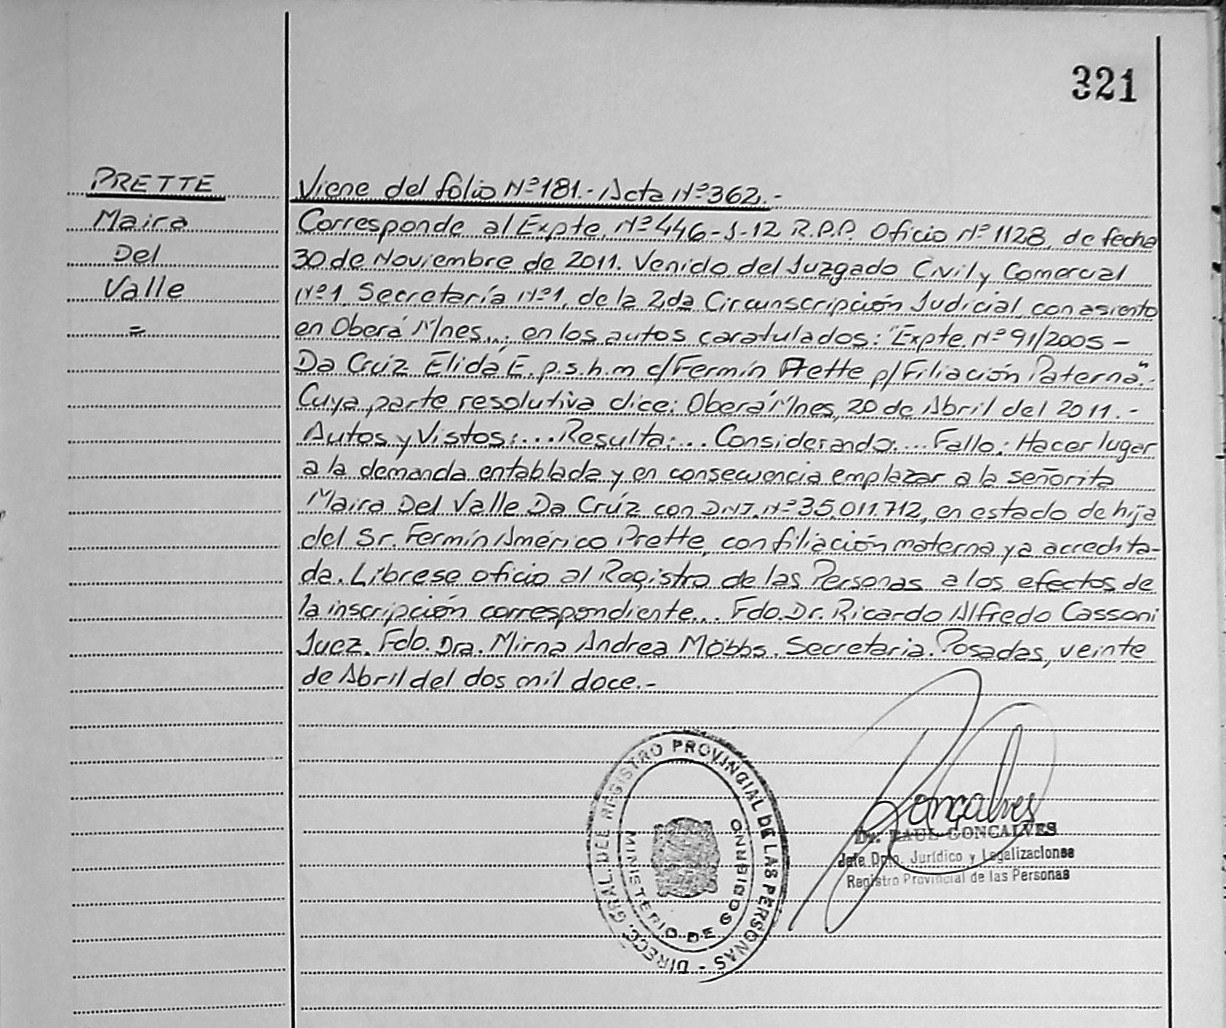 321
PRETTE
Maira
Del
Valle
=
Viene del folio Nº181.- Acta Nº362.-
Corresponde al Expte. Nº446-J-12 R.P.P. Oficio Nº1128 de fecha
30 de Noviembre de 2011. Venido del Juzgado Civil y Comercial
Nº1 Secretaría Nº1, de la 2da Circunscripción Judicial con asiento
en Oberá Mnes... en los autos caratulados: "Expte. Nº91/2005-
Da Cruz Elida E. p.s.h.m c/Fermín Prette p/Filiación Paterna".-
Cuya parte resolutiva dice: Oberá Mnes, 20 de Abril del 2011.-
Autos y Vistos:... Resulta:... Considerando:... Fallo: Hacer lugar
a la demanda entablada y en consecuencia emplazar a la señorita
Maira Del Valle Da Crúz con DNI. Nº35.011.712, en estado de hija
del Sr. Fermín Américo Prette, con filiación materna ya acredita-
da. Líbrese oficio al Registro de las Personas a los efectos de
la inscripción correspondiente... Fdo. Dr. Ricardo Alfredo Cassoni
Juez. Fdo. Dra. Mirna Andrea Möbbs. Secretaria. Posadas, veinte
de Abril del dos mil doce.-
DIRECC. GRAL. DEL REGISTRO PROVINCIAL DE LAS PERSONAS -
MINISTERIO DE GOBIERNO
Goncalves
Dr. RAUL GONCALVES
Jefe Dpto. Jurídico y Legalizaciones
Registro Provincial de las Personas